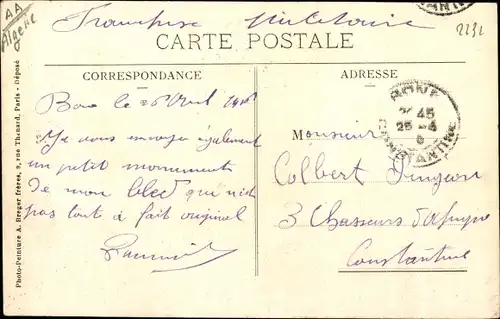 AA
Algerie
Franchise Militaire
2232
CARTE POSTALE
CORRESPONDANCE
ADRESSE
Photo-Peinture A. Breger frères, 9, rue Thénard, Paris - Déposé
Bone le Avril
Je vous envoye également
un petit monument
de mon bled qui n'est
pas tout à fait original
BONE
45
25 -4
CONSTANTINE
Monsieur
Colbert
3 Chasseurs d'Afrique
Constantine